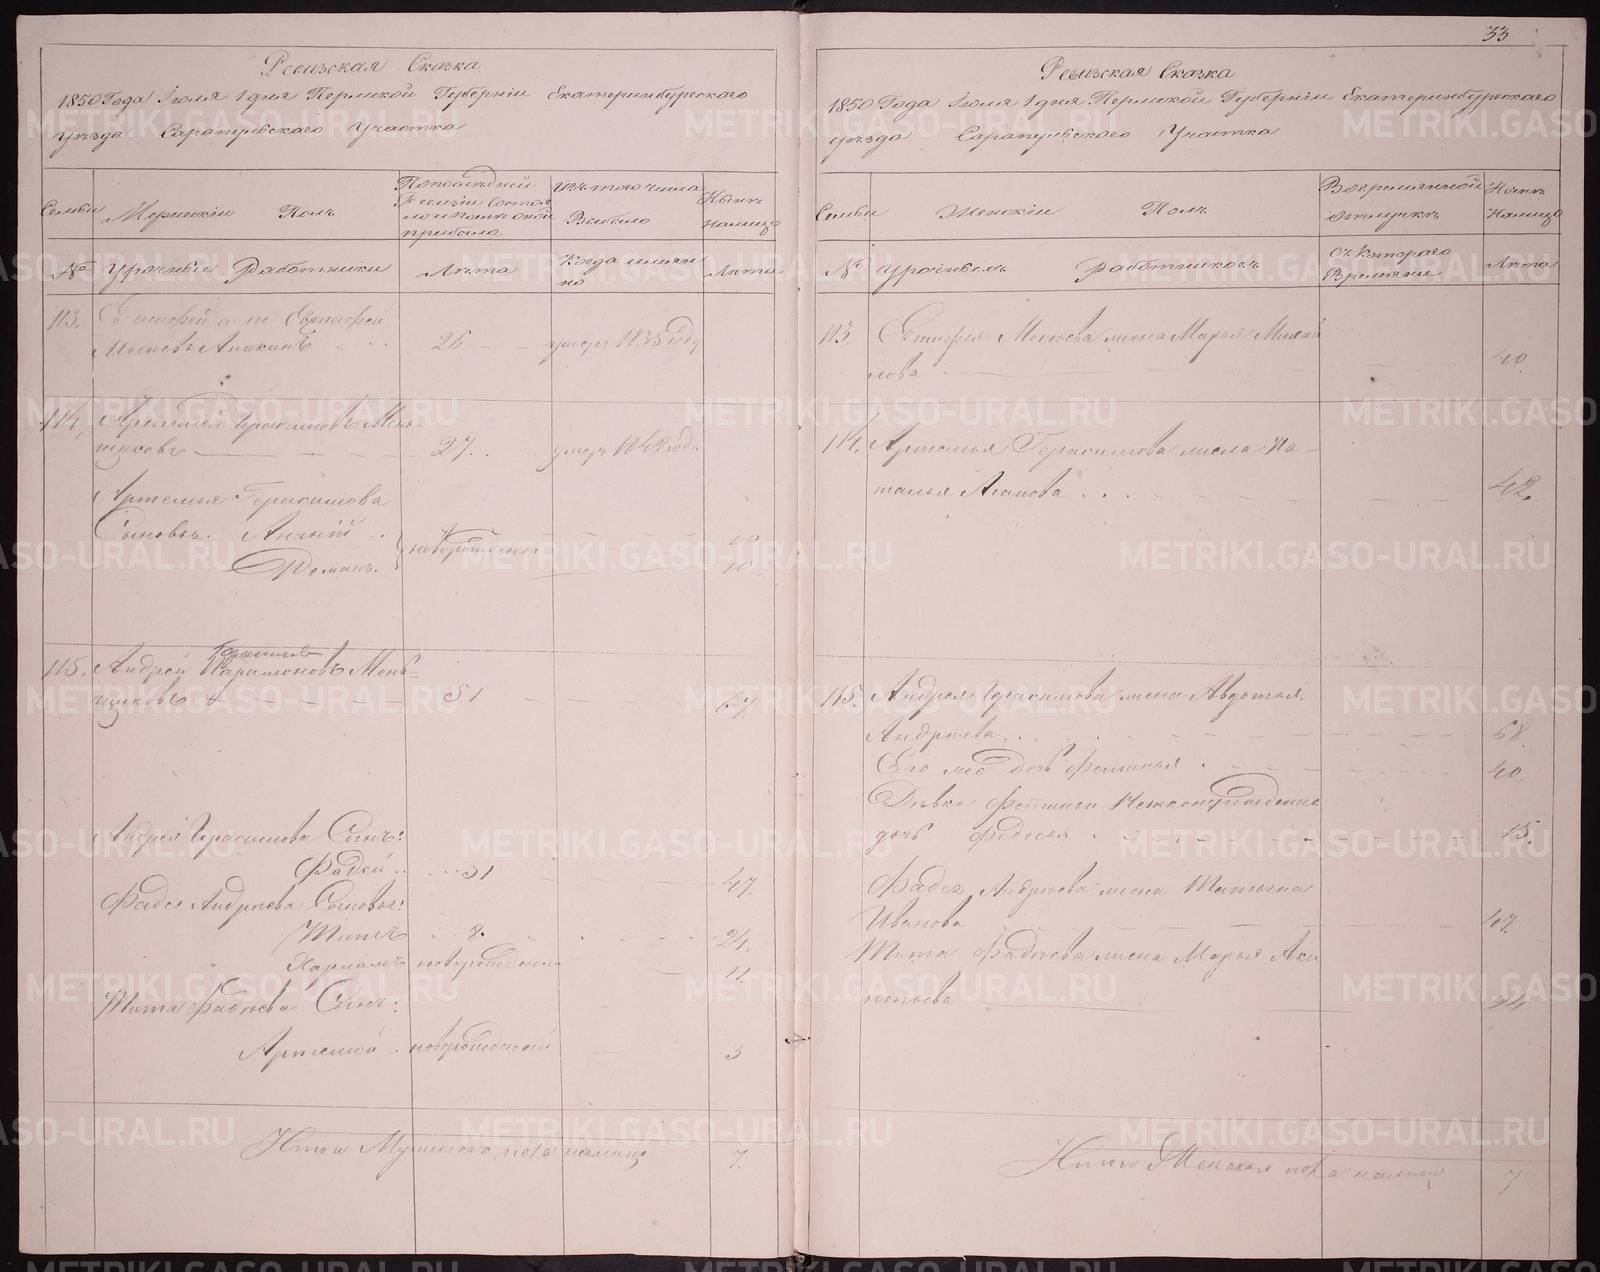 33
Ревизская Сказка
1850 Года Іюля 1 дня Пермской Губерніи Екатеринбургскаго
уѣзда Сарапульскаго Участка
Семьи
Мужескій Полъ
По последней
Ревизіи состоя
ло и после оной
прибыло.
Изъ того числа
Выбыло
Нынѣ
налицо
№
Урочные Работники
Лѣта
Когда имян
но
Лѣта
113.
Мосѣевъ Аникинъ
26
умеръ 1835 году
114.
Артемей Герасимовъ Мень
щиковъ
27.
умеръ 1849 год.
Артемья Герасимова
Сыновья. Ананій
Романъ.
новорожден
10
115. Андрей Герасимовъ Парамоновъ Мень=
щиковъ
51
67.
Андрея Герасимова Сынъ:
Фадей
31
47.
Фадея Андрѣева Сыновья:
Титъ
8.
24.
Харламъ новорожден
11.
Тита Фадѣева Сынъ:
Артемей новорожденный
3
Итого Мужеска пола налицо
7.
Ревизская Сказка
1850 Года Іюля 1 дня Пермской Губерніи Екатеринбургскаго
уѣзда Сарапульскаго Участка
Семьи
Женскій Полъ
Во временной
отлучкѣ
Нынѣ
Налицо
№
Урочныхъ Работниковъ
Съ котораго
Времяни
Лѣта
113.
Мосѣева жена Марья Михай
лова
40.
114. Артемья Герасимова жена На
талья Агапова
42.
115. Андрея Герасимова жена Авдотья
Андрѣева
68.
Его же дочь Фетинья
40.
Дѣвки Фетиньи Незаконнорожденная
дочь Федосья
15.
Фадея Андрѣева жена Татьяна
Иванова
47.
Тита Фадѣева жена Марья Аки
нтьева
24
Итого Женска пола налицо
7
METRIKI.GASO-URAL.RU